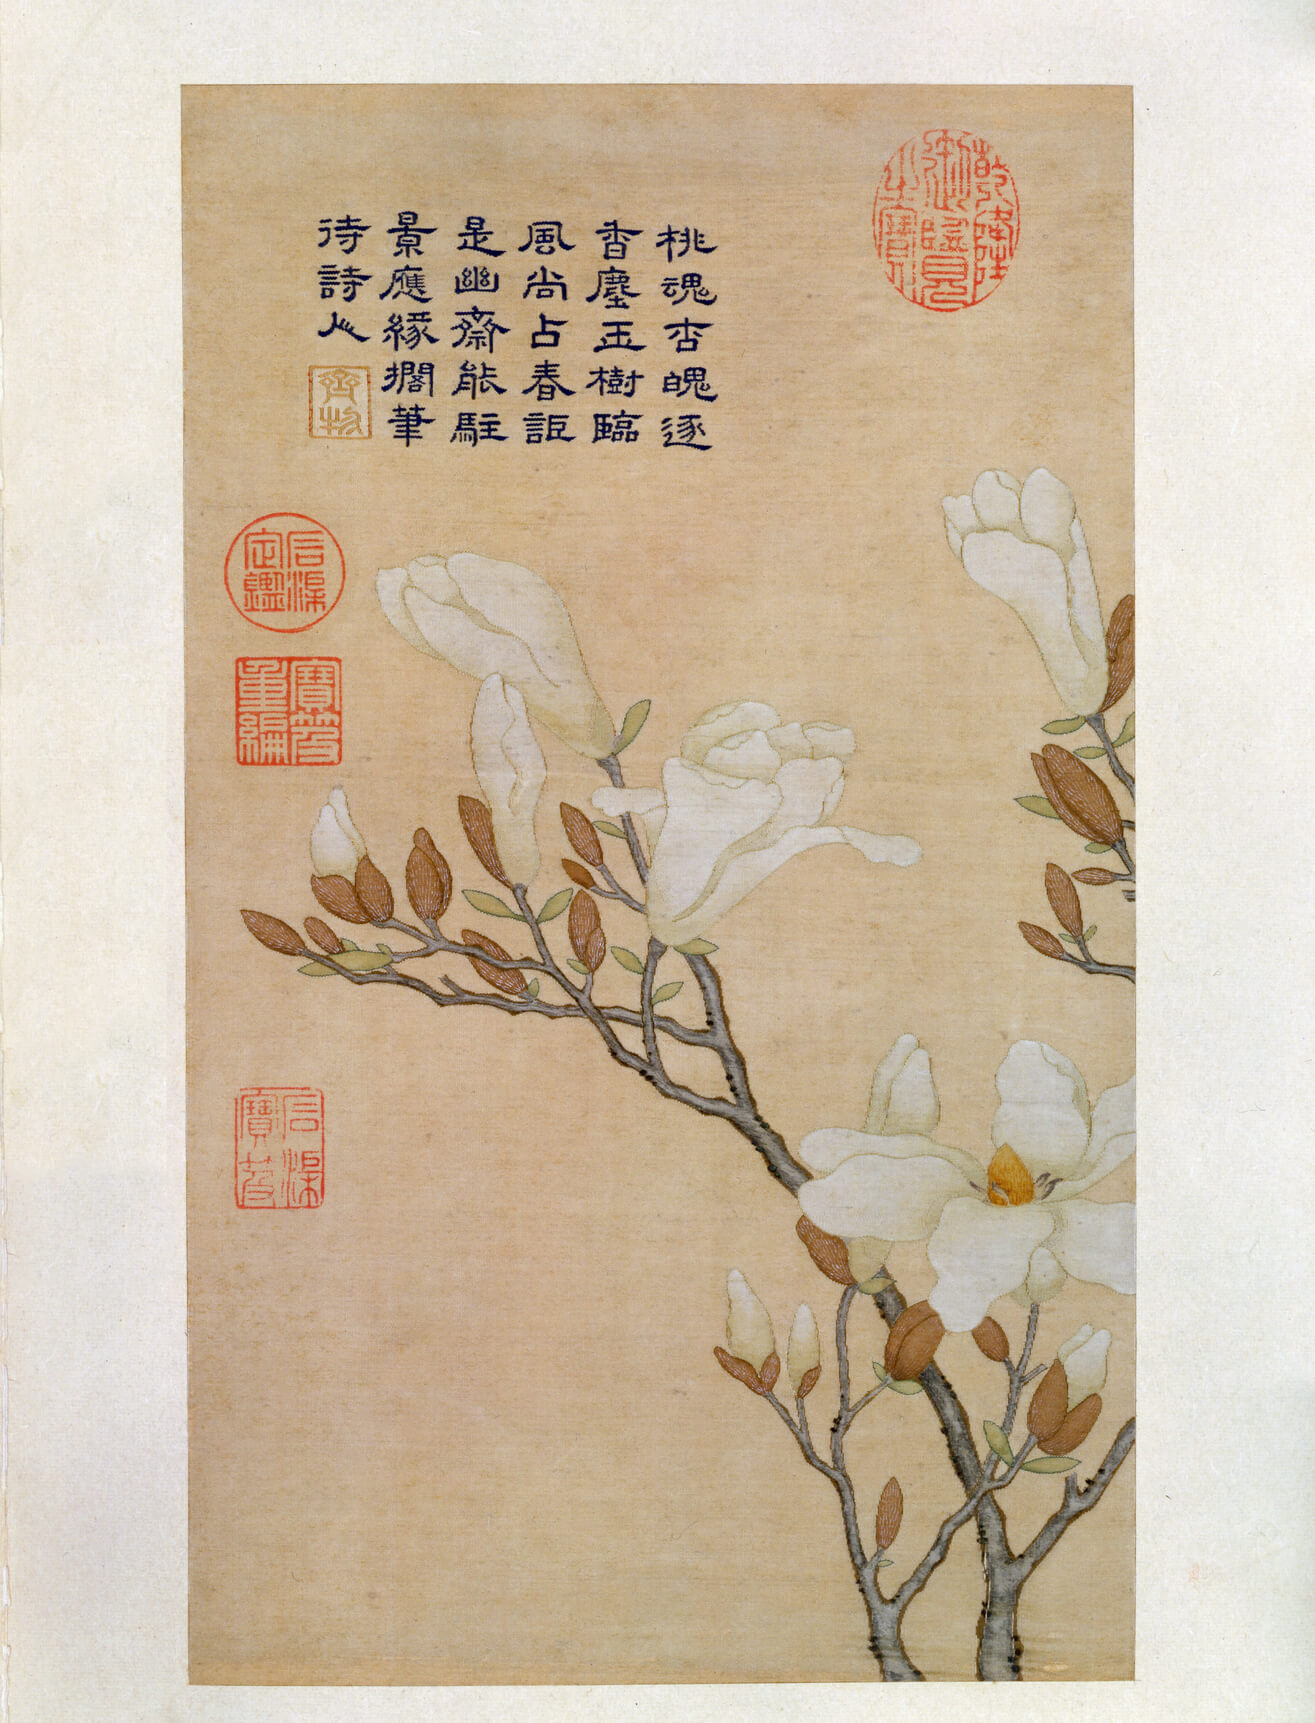 桃魂杏魄逐
香塵玉樹臨
風尚占春詎
是幽齋能駐
景應緣擱筆
待詩人
齊物
乾隆
御覽
之寶
石渠
定鑑
寶笈
重編
石渠
寶笈